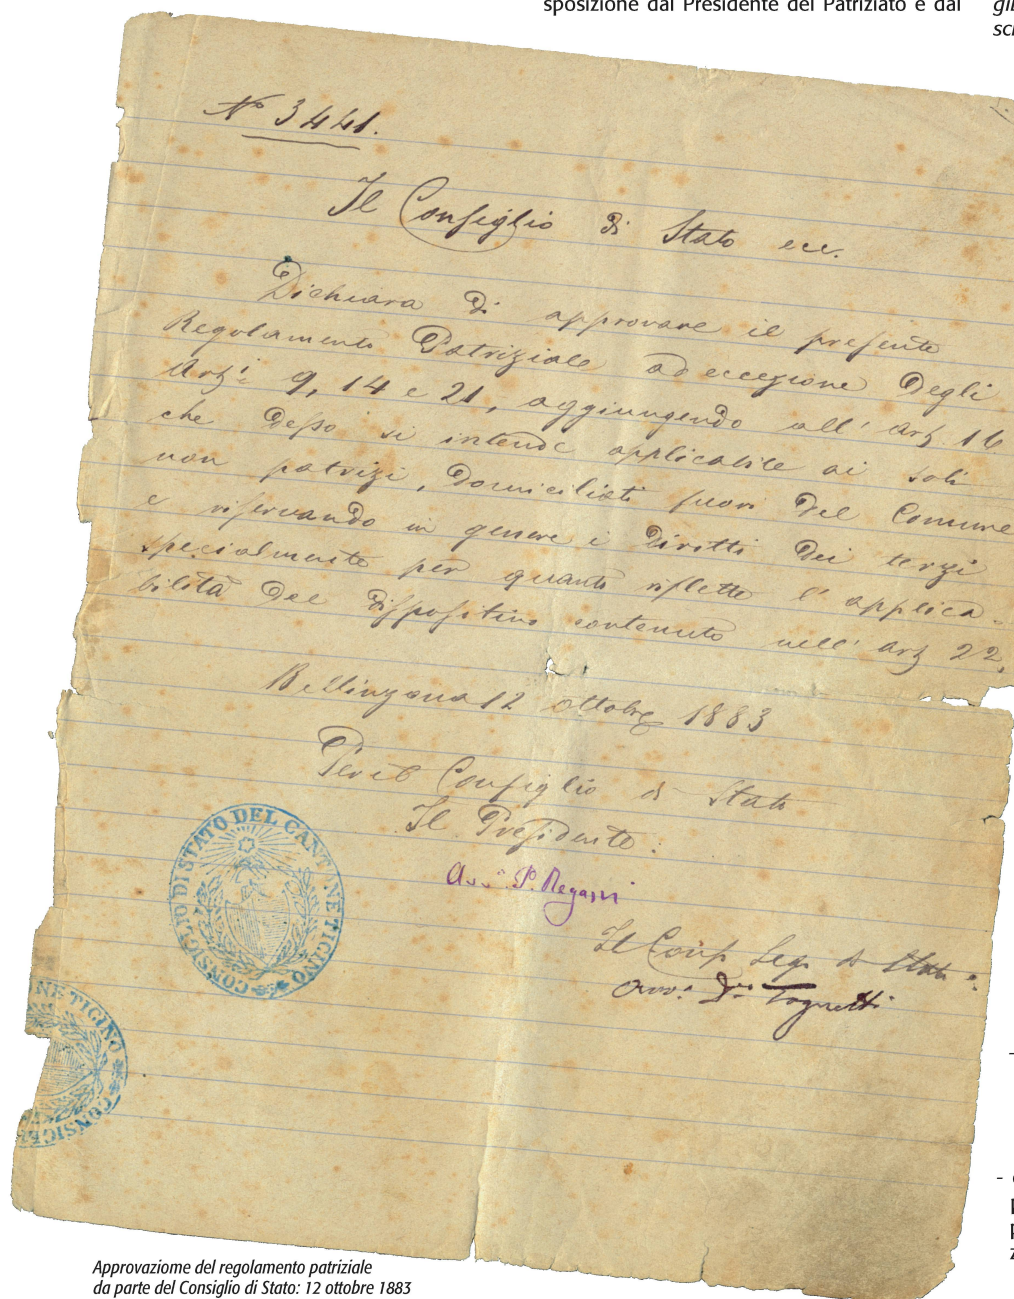 sposizione dal Presidente del Patriziato e dal
N° 3441.
Il Consiglio di Stato ecc.
Dichiara di approvare il presente
Regolamento Patriziale ad eccezione degli
Art.i 9, 14 e 21, aggiungendo all' art 16
che desso si intende applicabile ai soli
non patrizi, domiciliati fuori del Comune
e riservando in genere i diritti dei terzi
specialmente per quanto riflette l' applica-
bilità del dispositivo contenuto nell' art 22.
Bellinzona 12 ottobre 1883
Per il Consiglio di Stato
Il Presidente:
Avv.o P. Regazzi
Il Cons Seg. di Stato:
Avv.o Tognetti
CONSIGLIO DI STATO DEL CANTONE TICINO
NE TICINO
CONSIG
Approvaziome del regolamento patriziale
da parte del Consiglio di Stato: 12 ottobre 1883